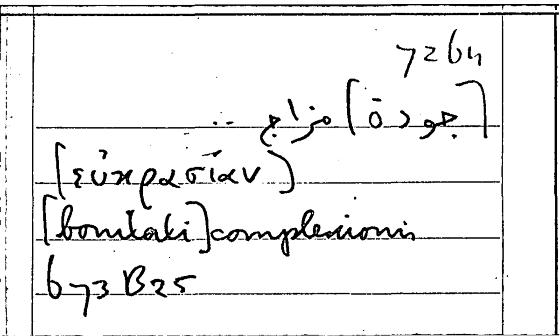 726h
[جودة] مزاج ..
[εὐκρασίαν]
[bonitati] complexionis
673 B25